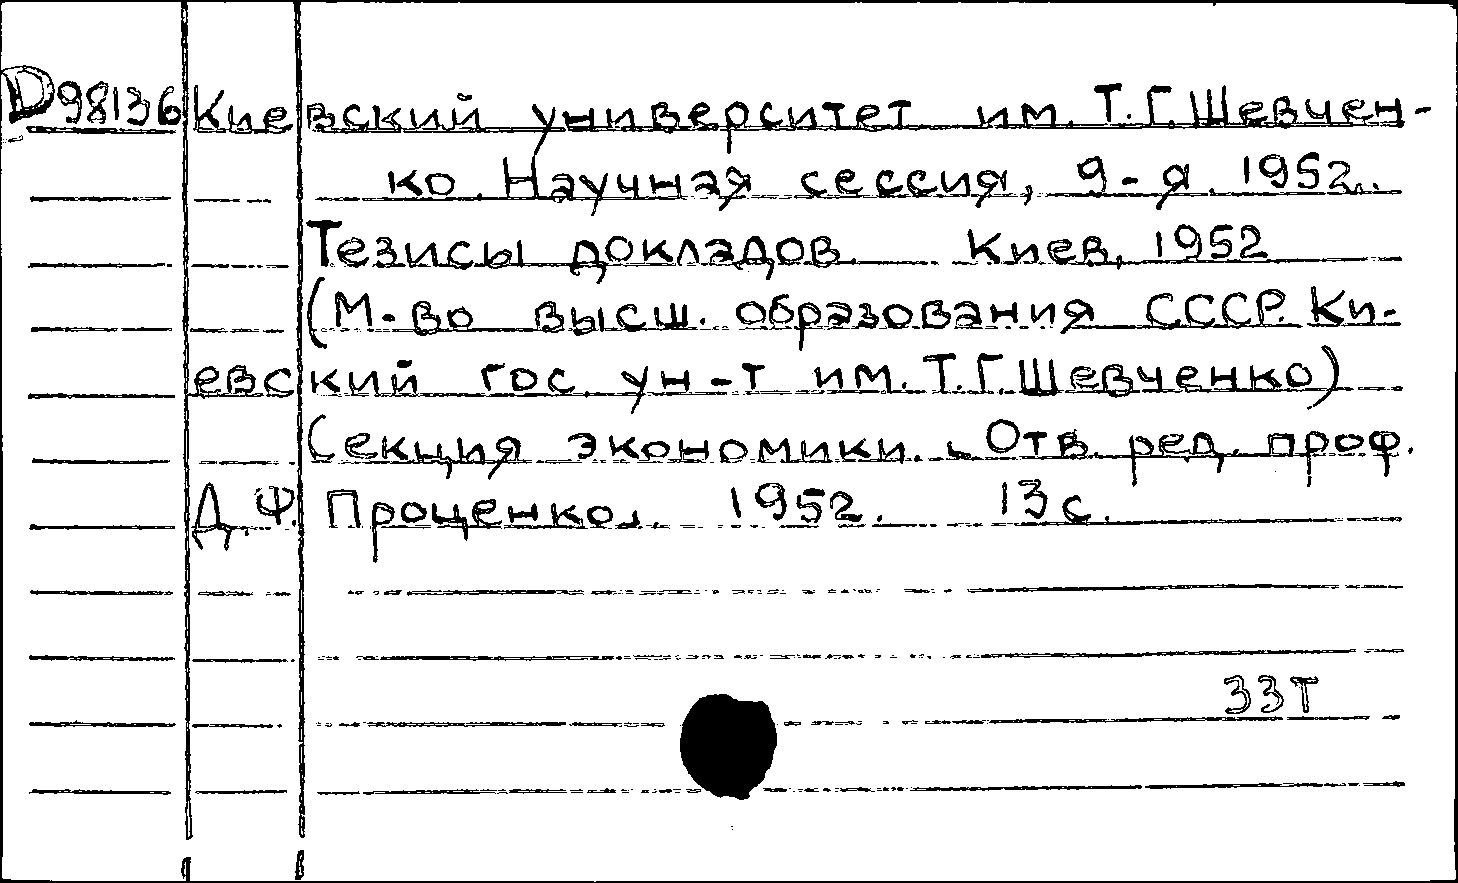 D98136 Киевский университет им. Т.Г. Шевчен-
ко. Научная сессия, 9-я. 1952.
Тезисы докладов. Киев, 1952
(М-во высш. образования СССР. Ки-
евский гос. ун-т им. Т.Г. Шевченко)
Секция экономики. Отв. ред. проф.
Д.Ф. Проценко. 1952. 13 с.
33Т